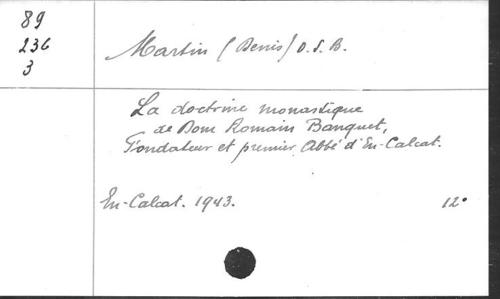 89
236
3
Martin (Denis) O.S.B.
La doctrine monastique
de Dom Romain Banquet,
Fondateur et premier Abbé d'En-Calcat.
En-Calcat. 1943. 12°